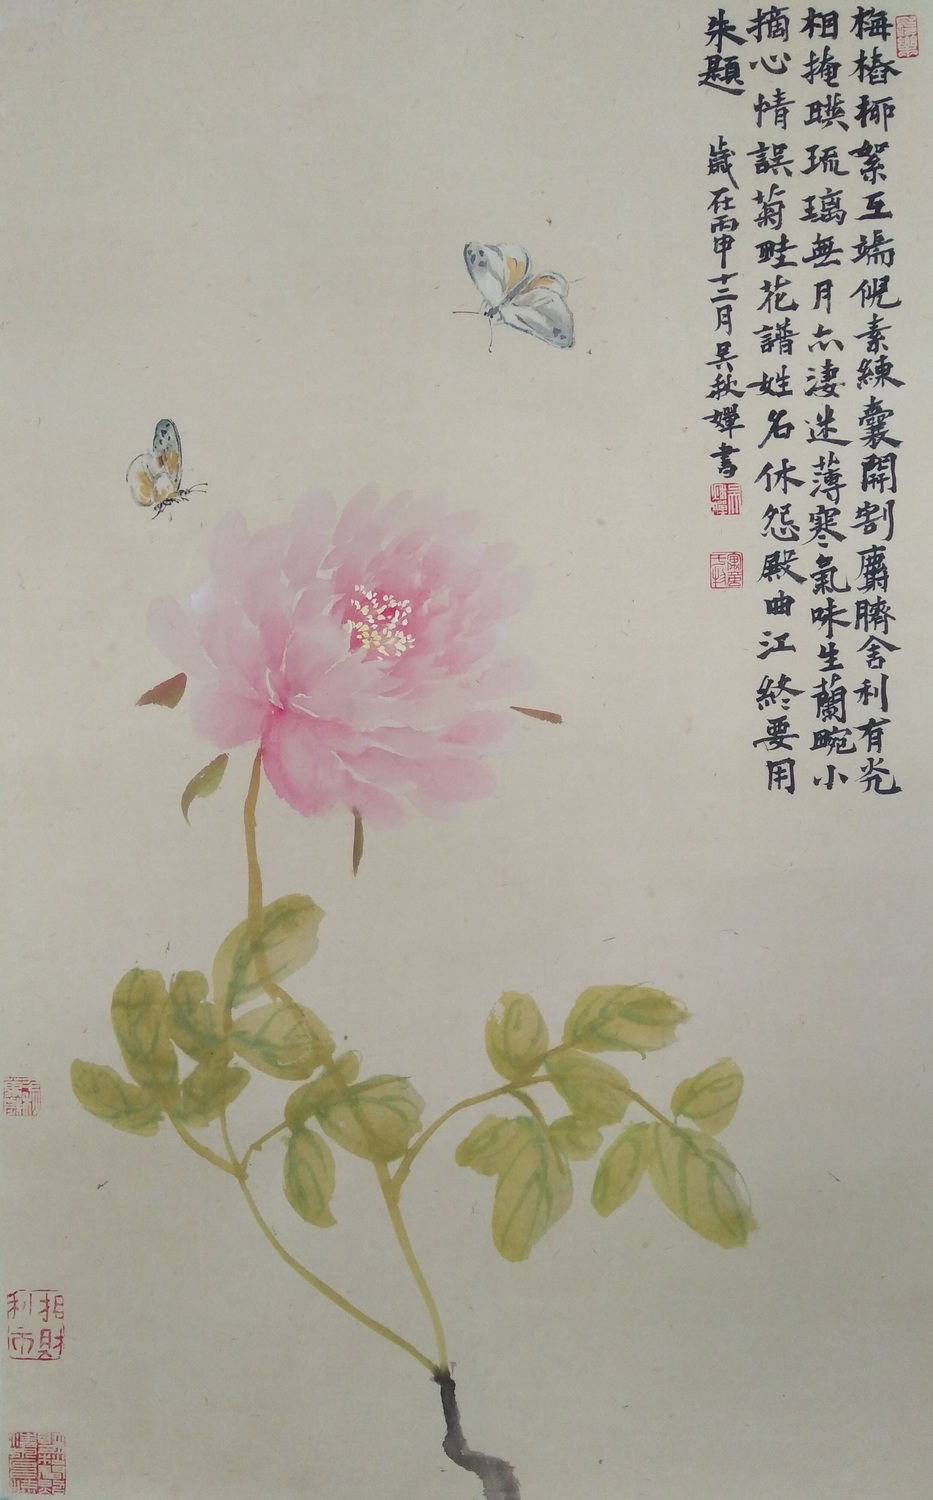 梅樁柳絮互端倪素練囊開割麝臍舍利有光
相掩暎琉璃無月亦淒迷薄寒氣味生蘭畹小
摘心情誤菊畦花譜姓名休怨殿曲江終要用
朱題
歲在丙申十二月吳秋嬋書
招財
利市